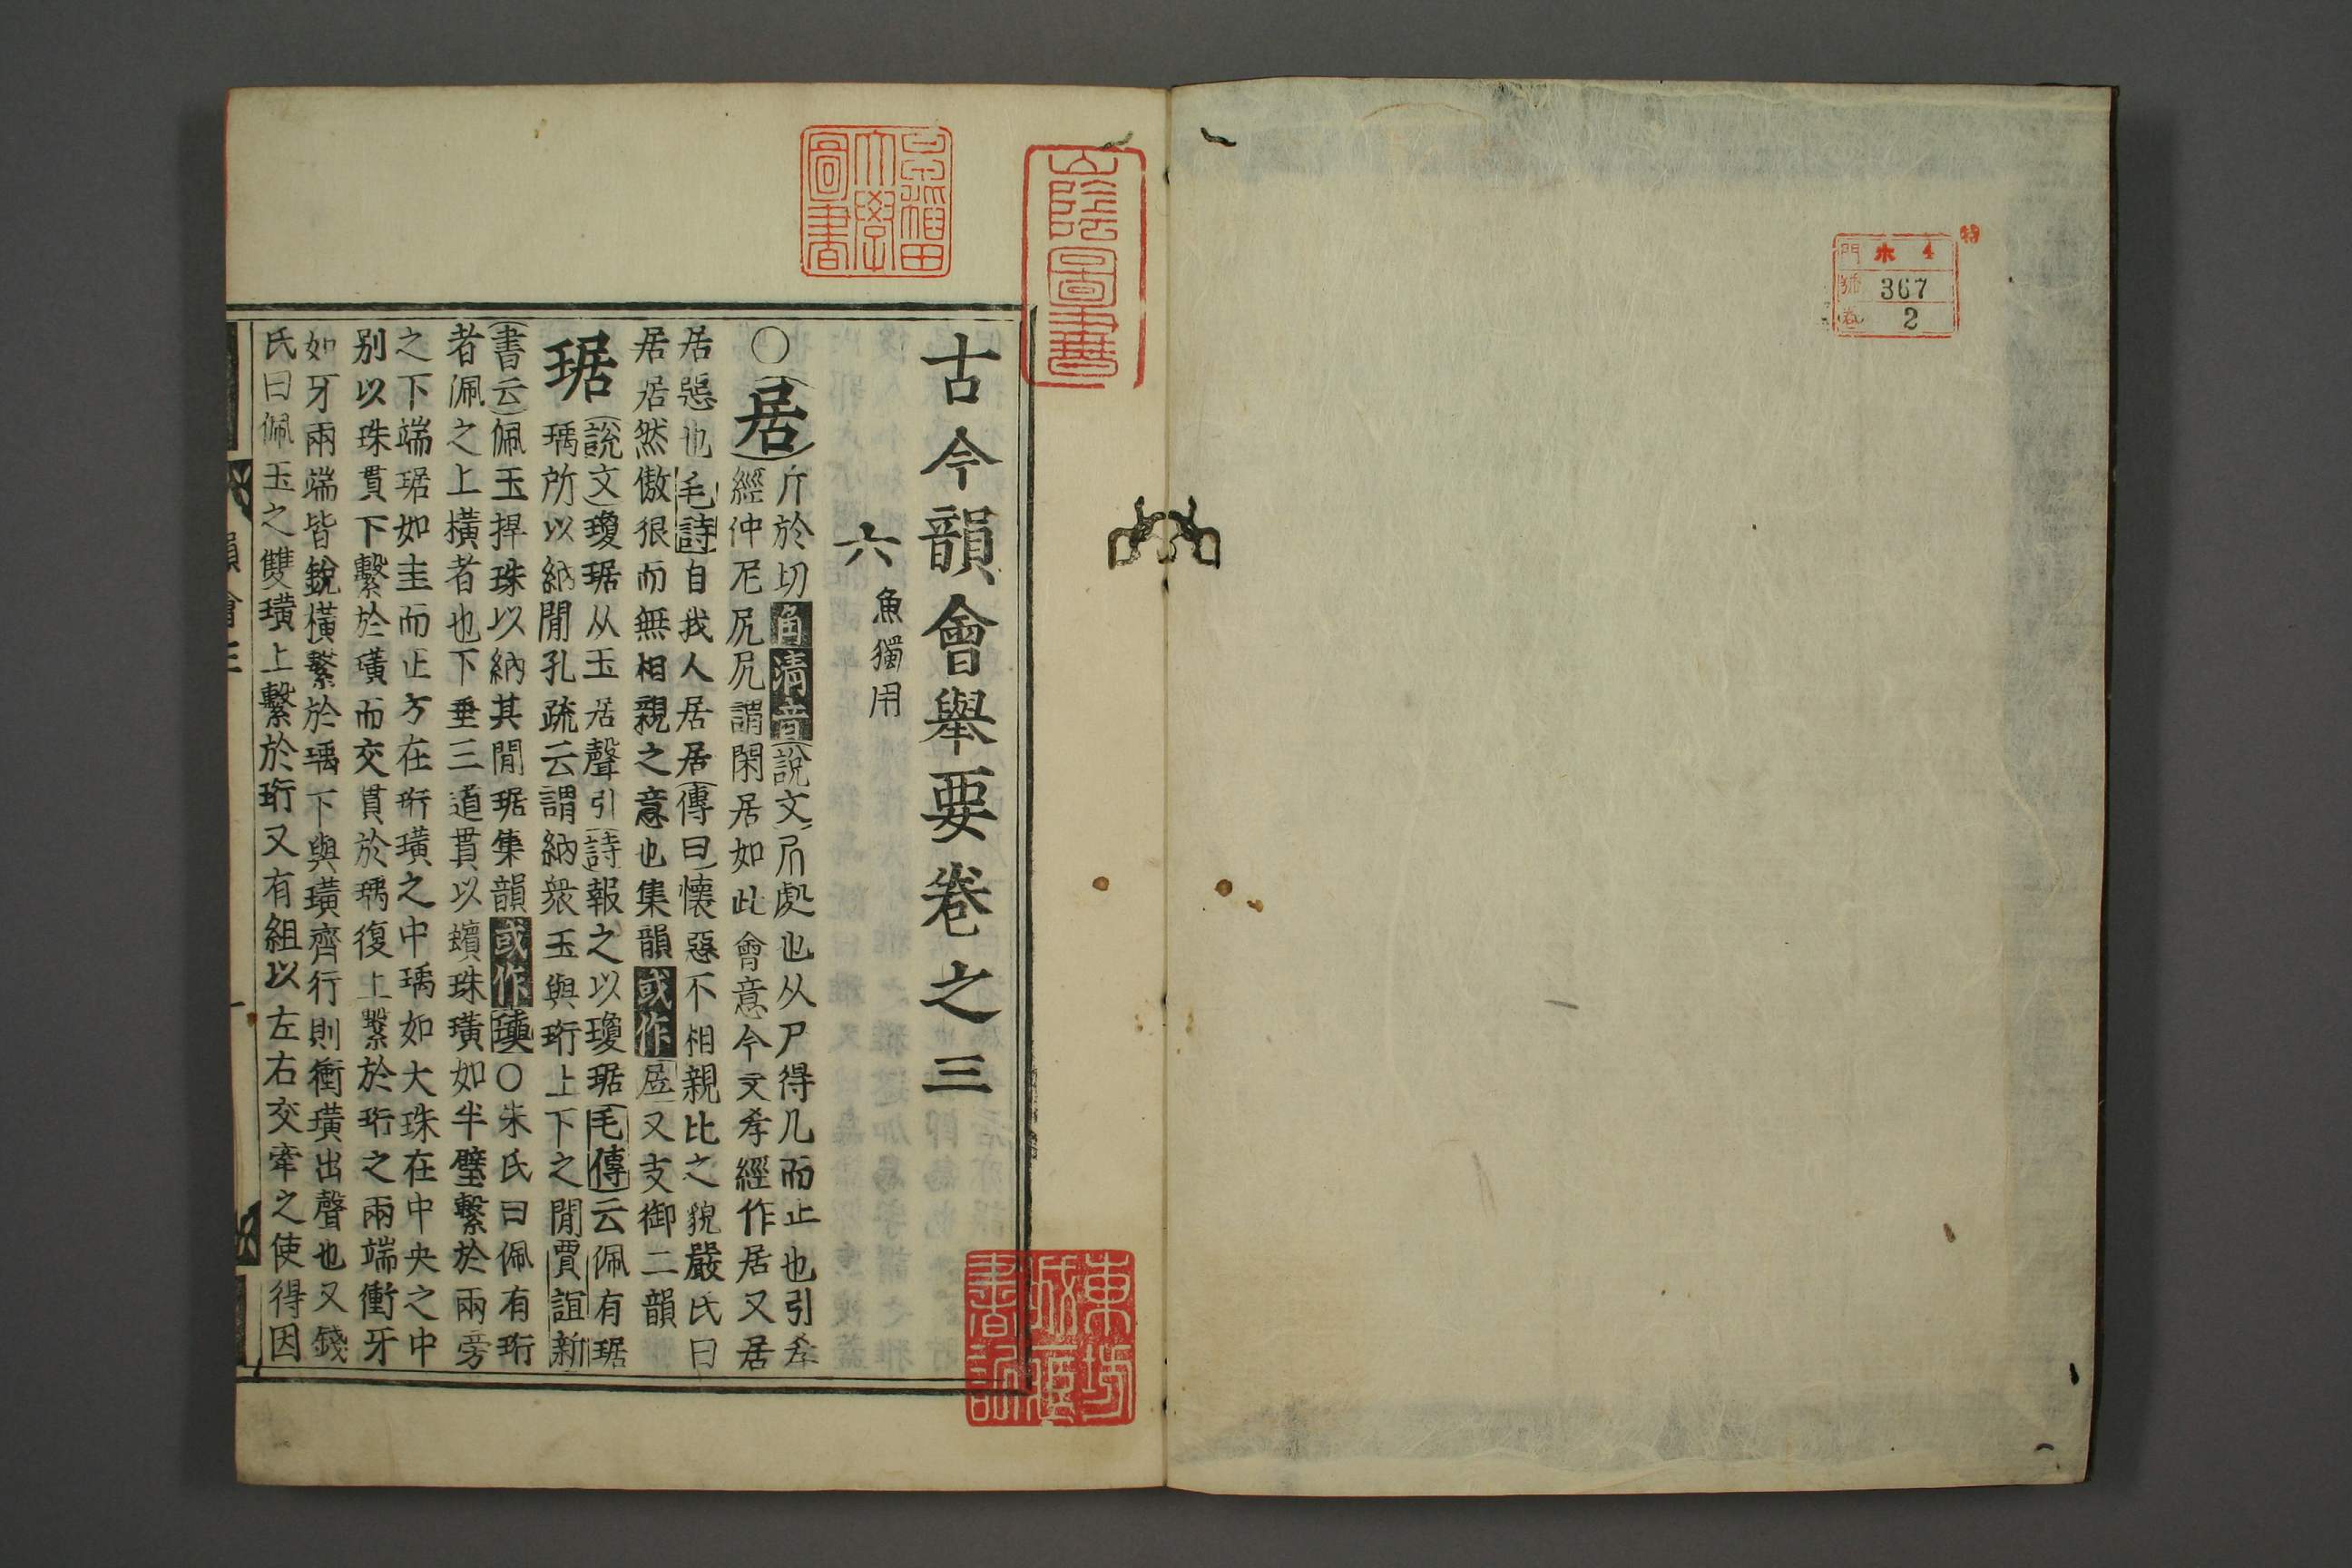 特
門 ホ 4
號 367
卷 2
古今韻會舉要卷之三
六 魚獨用
○居 斤於切角清音說文凥處也从尸得几而止也引孝
經仲尼凥凥謂閑居如此會意今文孝經作居又居
居惡也毛詩自我人居居傳曰懷惡不相親比之貌嚴氏曰
居居然傲很而無相親之意也集韻或作㞐又支御二韻
琚 說文瓊琚从玉居聲引詩報之以瓊琚毛傳云佩有琚
瑀所以納閒孔疏云謂納衆玉與珩上下之閒賈誼新
書云佩玉捍珠以納其閒琚集韻或作璩○朱氏曰佩有珩
者佩之上橫者也下垂三道貫以蠙珠璜如半璧繫於兩旁
之下端琚如圭而正方在珩璜之中瑀如大珠在中央之中
别以珠貫下繫於璜而交貫於瑀復上繫於珩之兩端衝牙
如牙兩端皆銳橫繫於瑀下與璜齊行則衝璜出聲也又錢
氏曰佩玉之雙璜上繫於珩又有組以左右交牽之使得因
韻會三
一
早稻田大學圖書